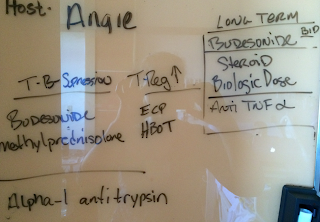 Host. Angie
LONG TERM
BUDESONIDE BID
STEROID
BIOLOGIC DOSE
ANTI TNFα
T-B SUPRESSION
BUDESONIDE
methylprednisolone
T-Reg↑
ECP
HBOT
Alpha-1 antitrypsin